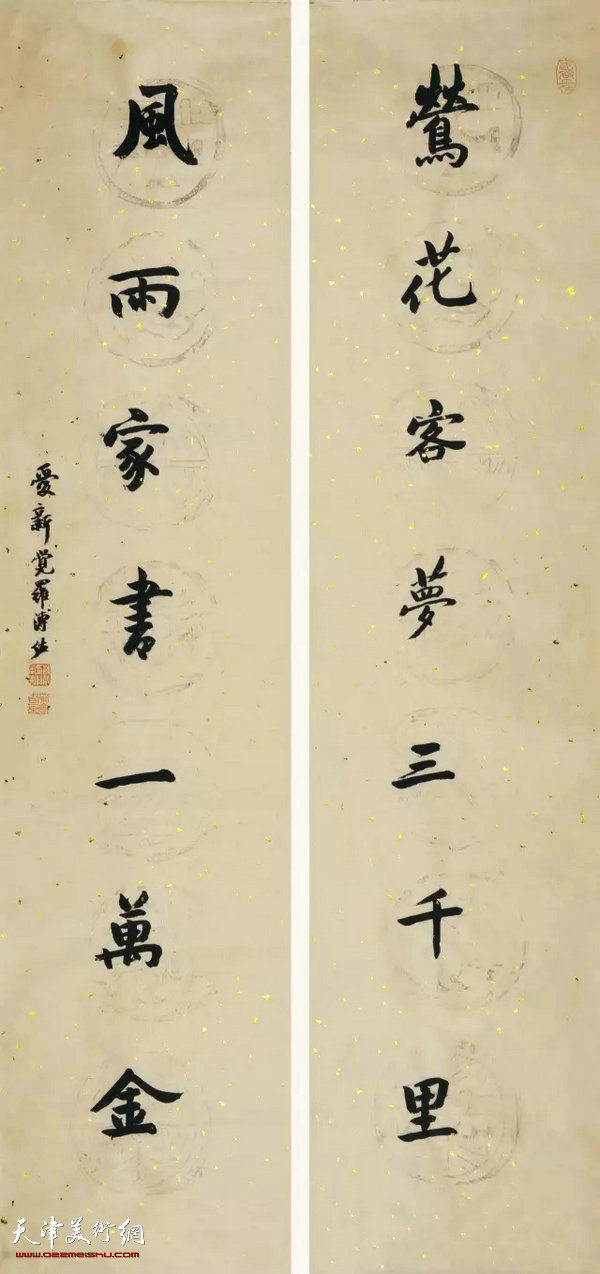 鶯花客夢三千里
風雨家書一萬金
愛新覺羅溥佐
天津美術網
www.022meishu.com